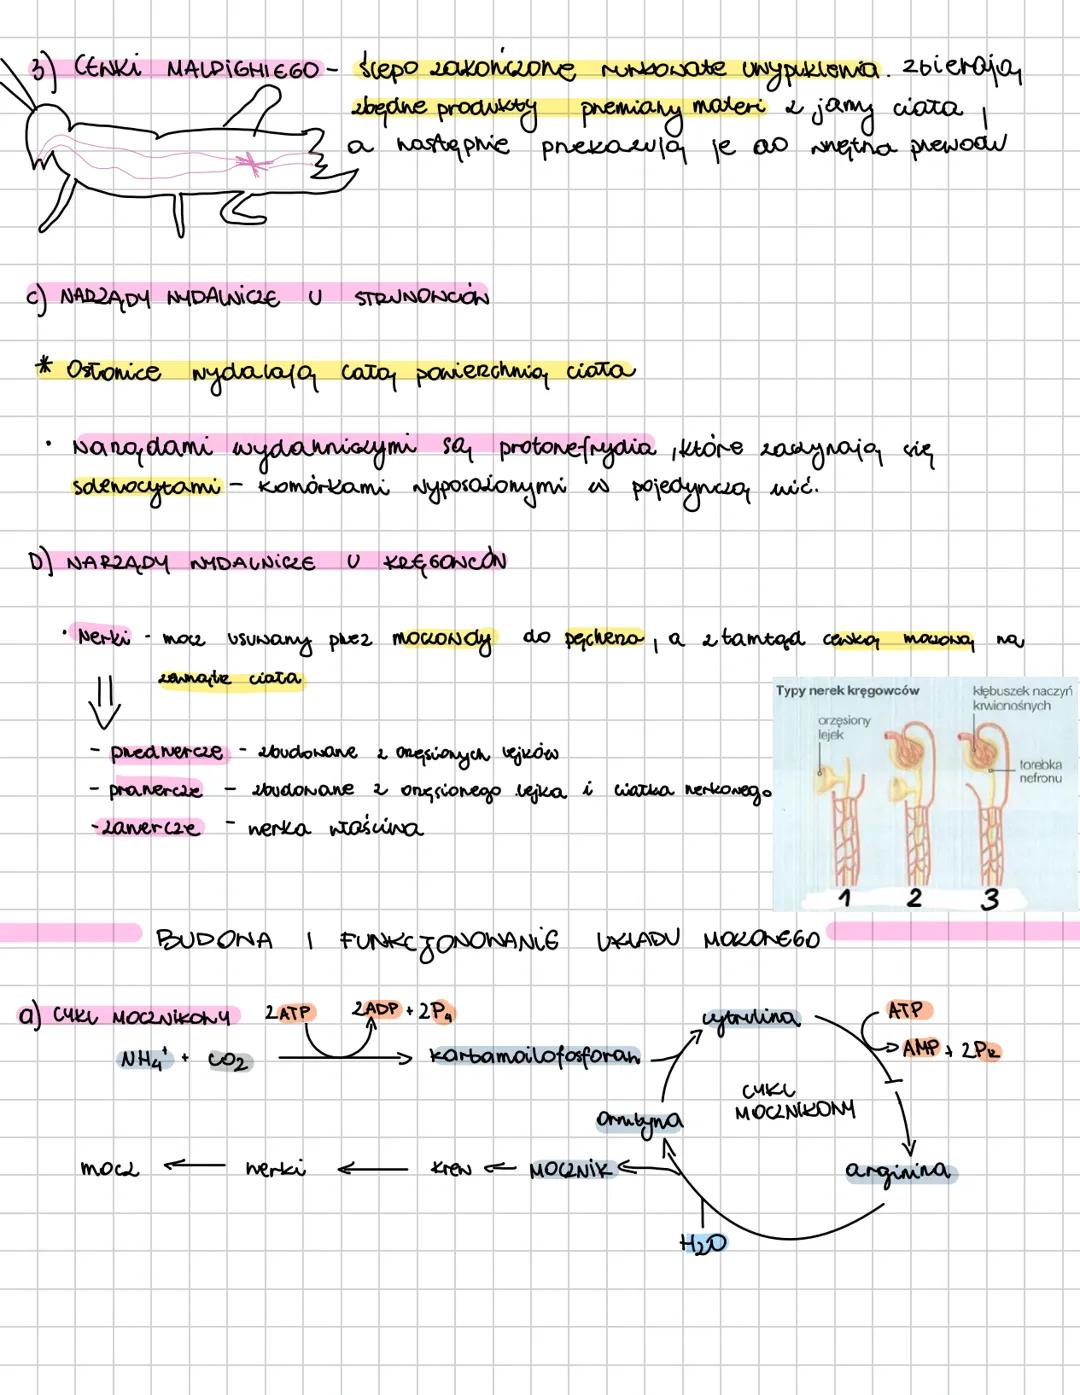 3) CEWKI MALPIGHIEGO - ślepo zakończone rurkowate uwypuklenia. zbierają
zbędne produkty przemiany materi z jamy ciała,
a następnie przekazują je do wnętrza przewodu
C) NARZĄDY WYDALNICZE U STRUNOWCÓW
* Osłonice wydalają całą powierzchnią ciała
· Narządami wydalniczymi są protonefrydia, które zaczynają się
solenocytami - komórkami wyposażonymi w pojedynczą wić.
D) NARZĄDY WYDALNICZE U KRĘGOWCÓW
· Nerki - mocz usuwany przez moczowody do pęcherza, a ztamtąd cewką moczową na
zewnątrz ciała
- przednercze - zbudowane z orzęsionych lejków
- pranercze - zbudowane z orzęsionego lejka i ciałka nerkowego
- zanercze - nerka właściwa
Typy nerek kręgowców
kłębuszek naczyń
krwionośnych
orzęsiony
lejek
torebka
nefronu
1 2 3
BUDOWA I FUNKCJONOWANIE UKŁADU MOCZOWEGO
a) CYKL MOCZNIKOWY
2ATP 2ADP + 2Pi
NH4+ + CO2
karbamoilofosforan
cytrulina
ATP
AMP + 2Pi
CYKL
MOCZNIKOWY
ornityna
mocz ← nerki ← krew ← MOCZNIK
arginina
H2O